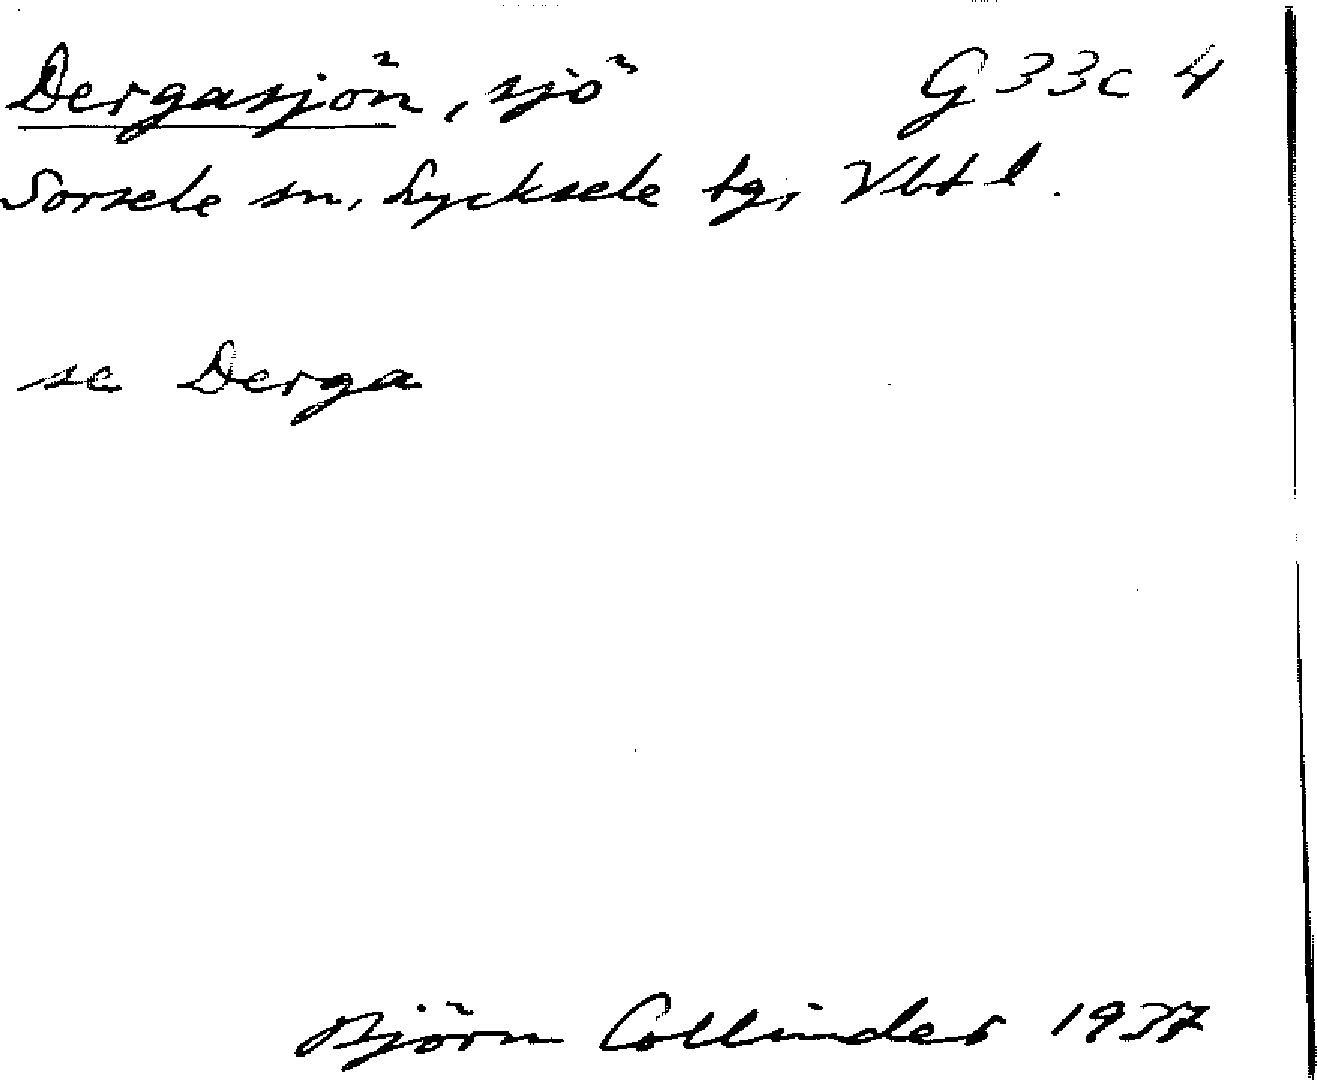 Dergasjön, sjö G 33c 4
Sorsele sn, Lycksele tg, Vbt l.
se Derga
Björn Collinder 1937